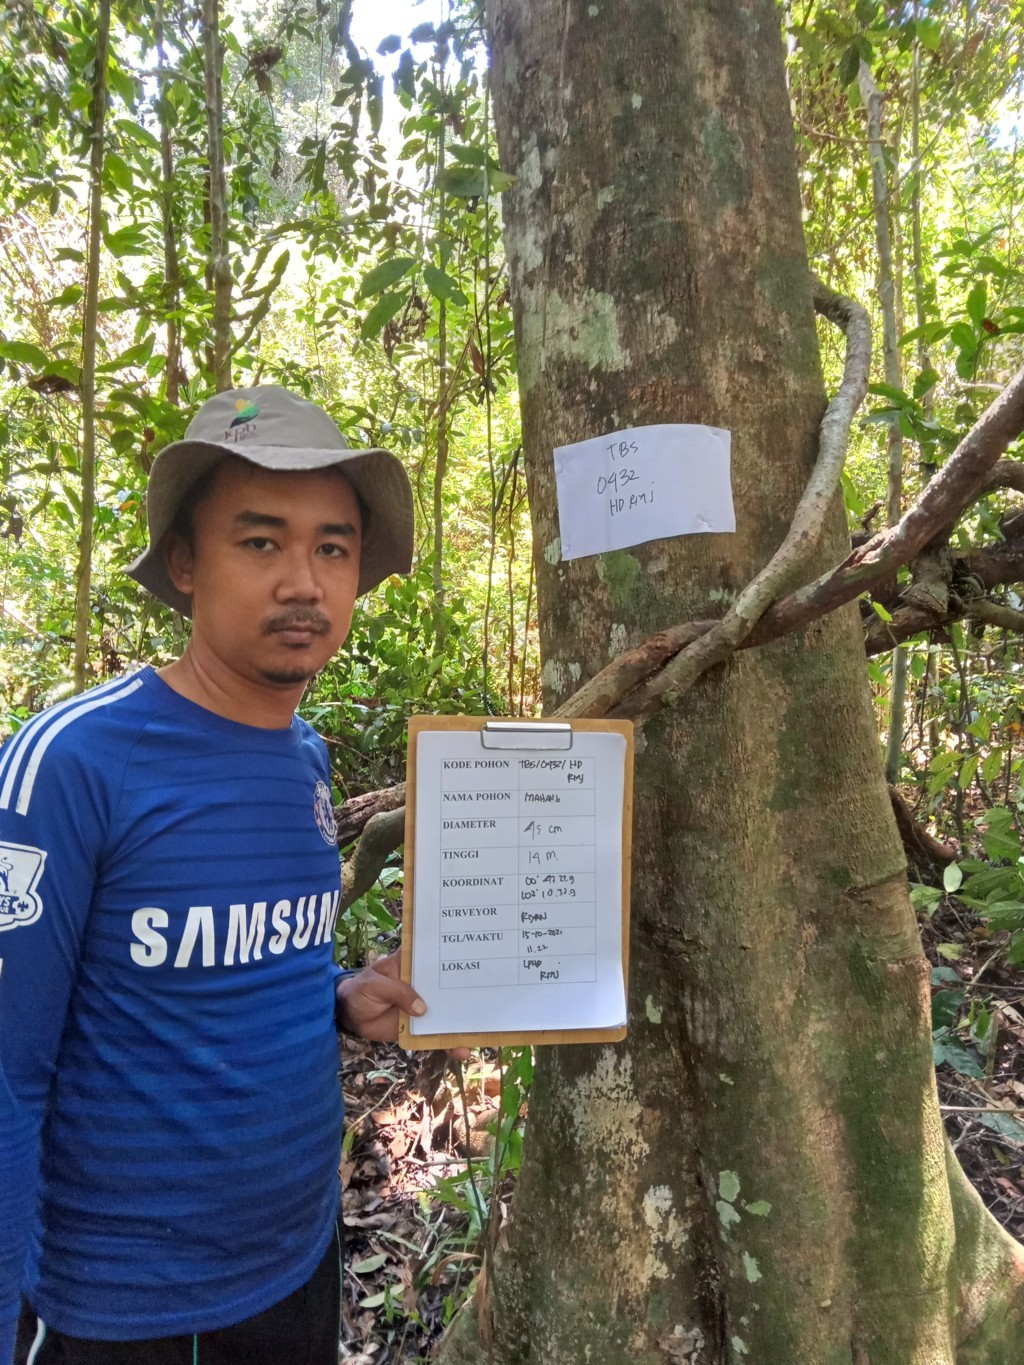 kph
TBS
0432
HD RMJ
SAMSUN
KODE POHON TBS/0432/HD
RMJ
NAMA POHON MAHANG
DIAMETER 45 cm
TINGGI 14 m.
KOORDINAT 00° 47 22.9
102° 10.32.9
SURVEYOR RIYAN
TGL/WAKTU 15-10-2021
11.27
LOKASI LPHD
RMJ